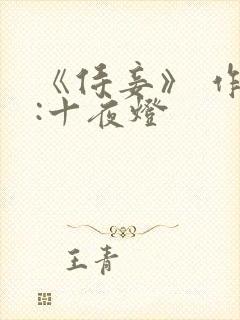 《侍妾》 作
:十夜燈
王青